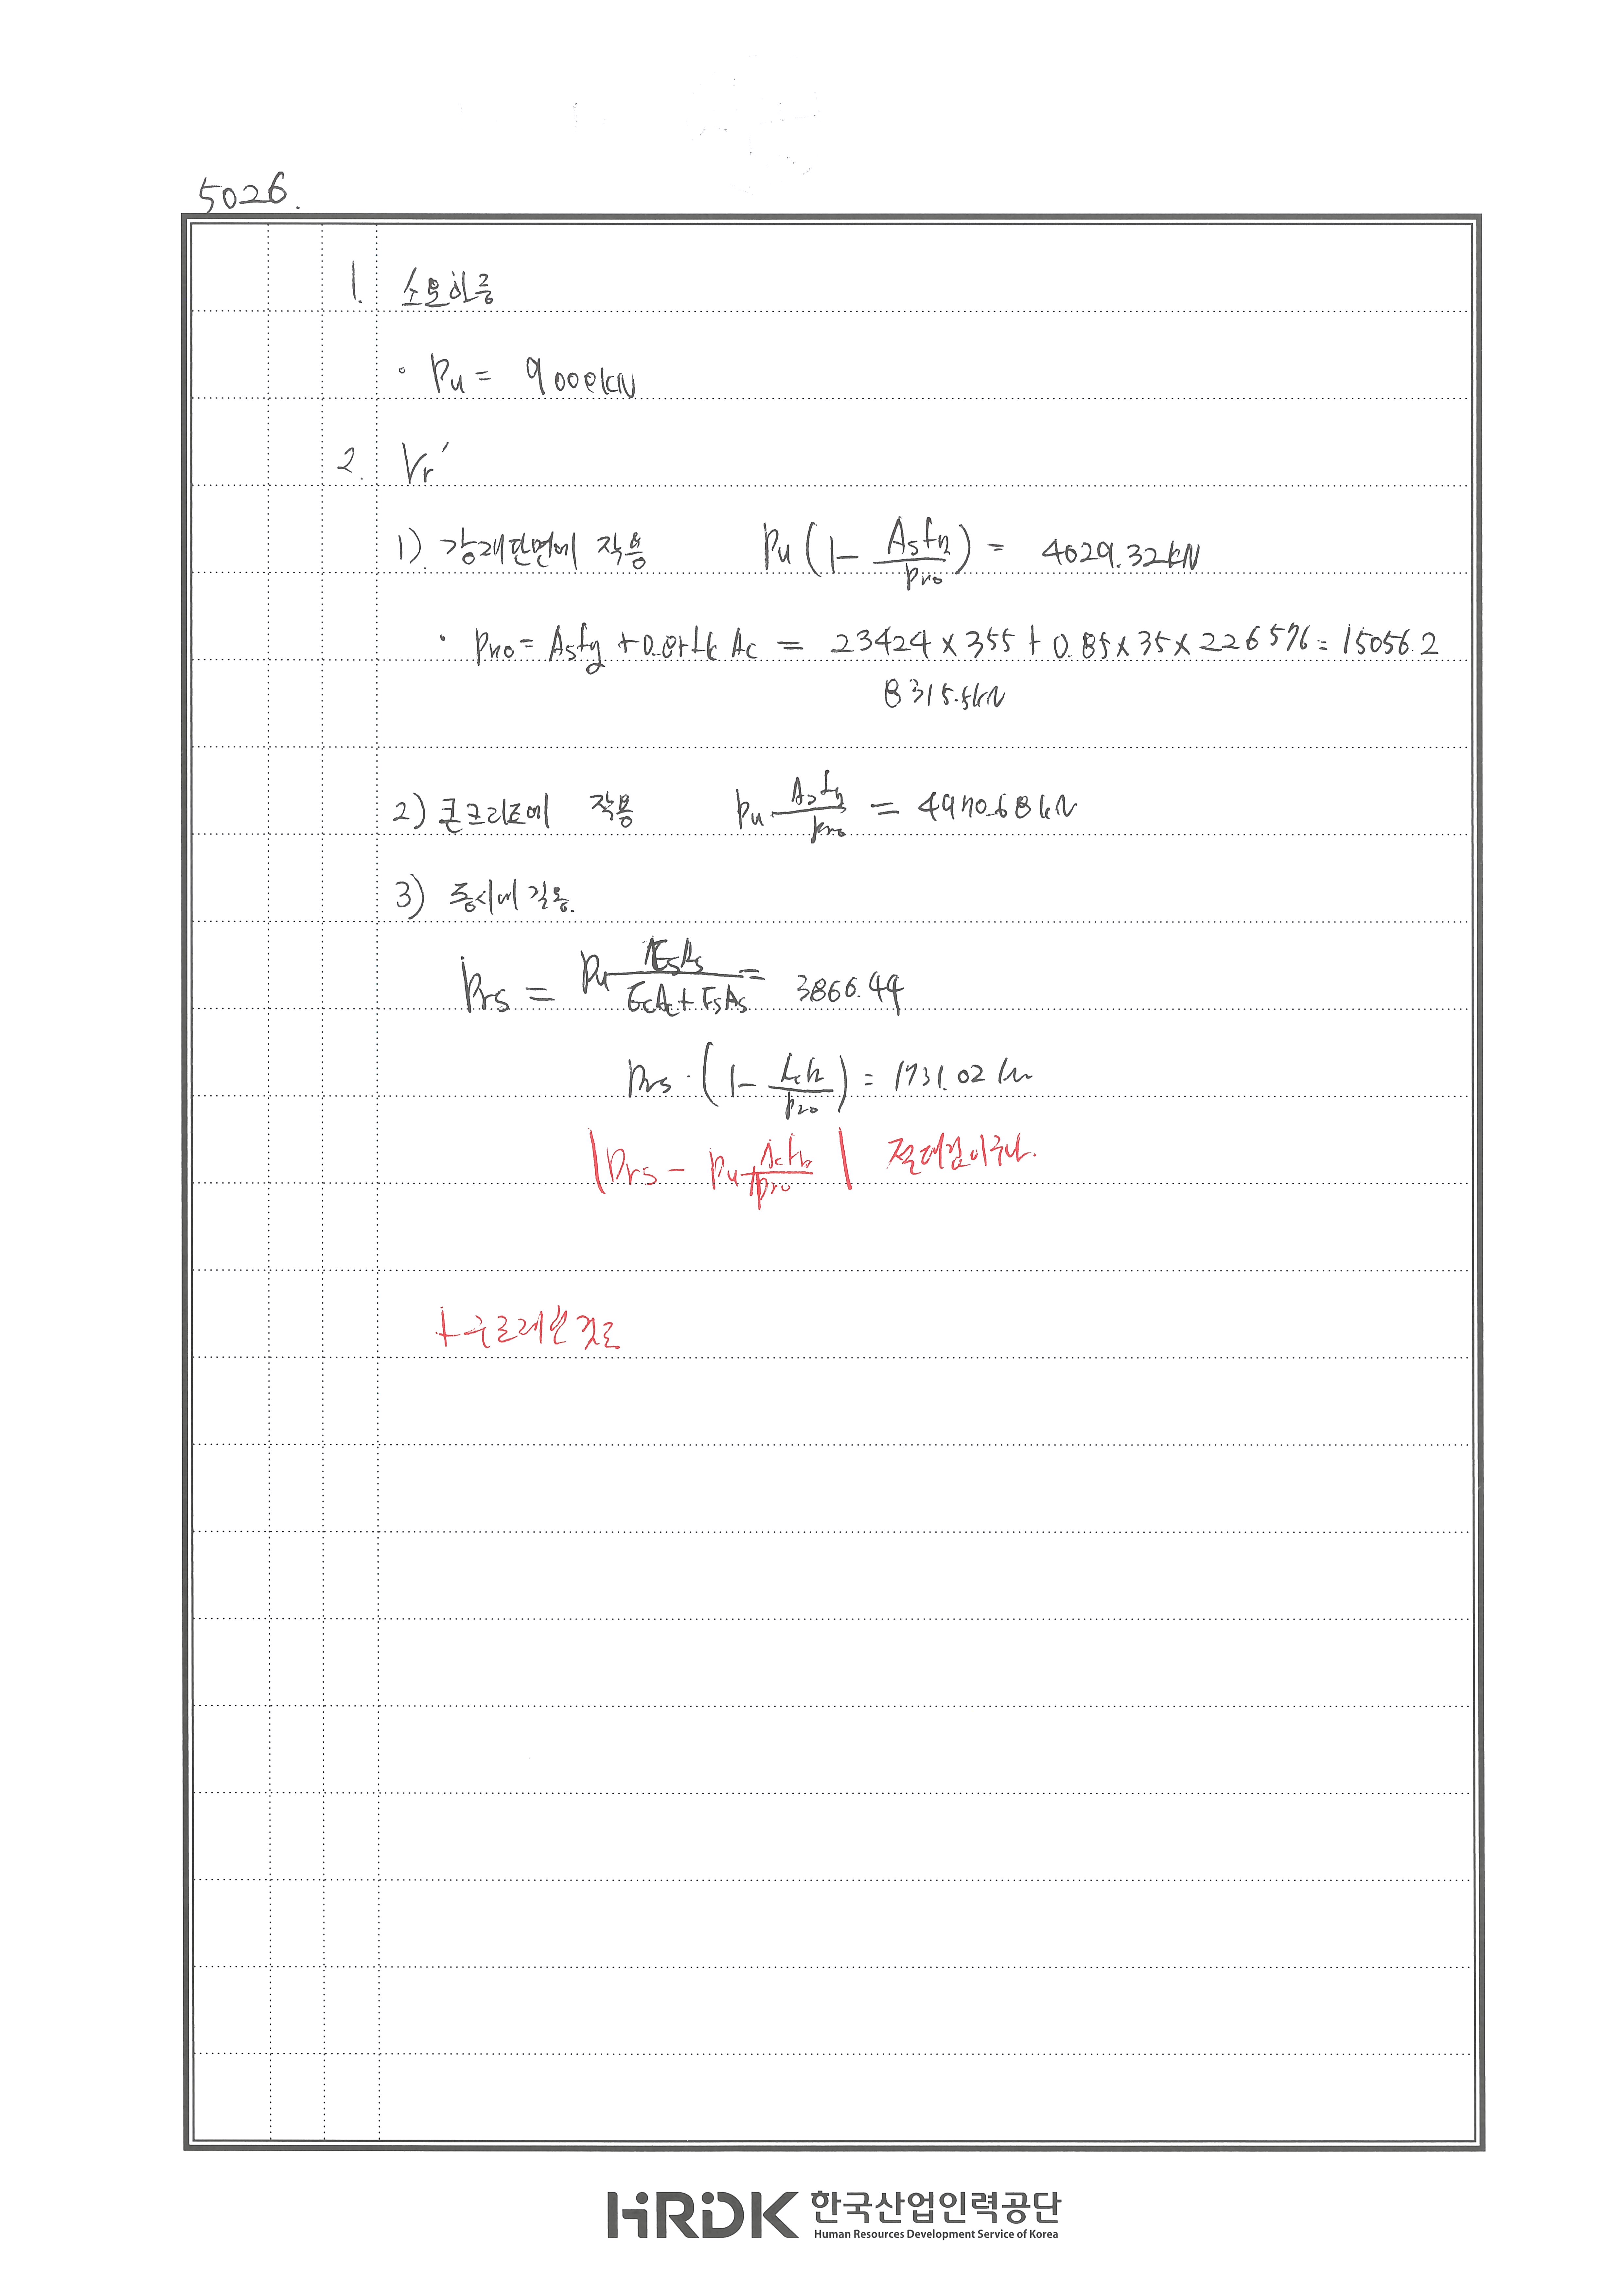 5026.
1. 소요하중
· Pu = 9000kN
2. Vr'
1) 강재단면에 작용 Pu(1 - Asfy/Pno) = 4029.32kN
· Pno = Asfy + 0.85fck Ac = 23424 × 355 + 0.85 × 35 × 226576 = 15056.2
8315.5kN
2) 콘크리트에 작용 Pu Asfy/Pno = 4970.68kN
3) 동시에 작용.
Prs = Pu EsAs/(EcAc + EsAs) = 3866.49
Prs · (1 - /Pno) = 1731.02
|Prs - Pu /Pno| 절대값이구나.
HRDK 한국산업인력공단
Human Resources Development Service of Korea